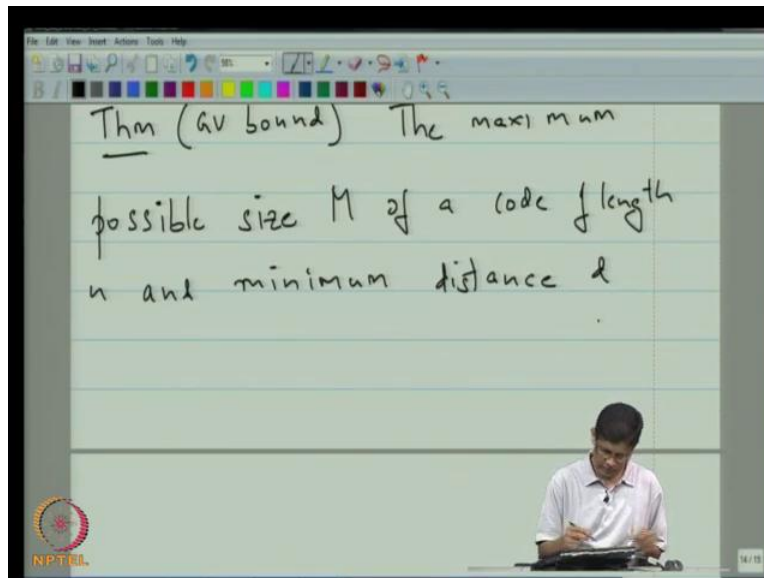 File Edit View Insert Actions Tools Help
Thm (GV bound) The maximum
possible size M of a code of length
n and minimum distance d
NPTEL
14/15